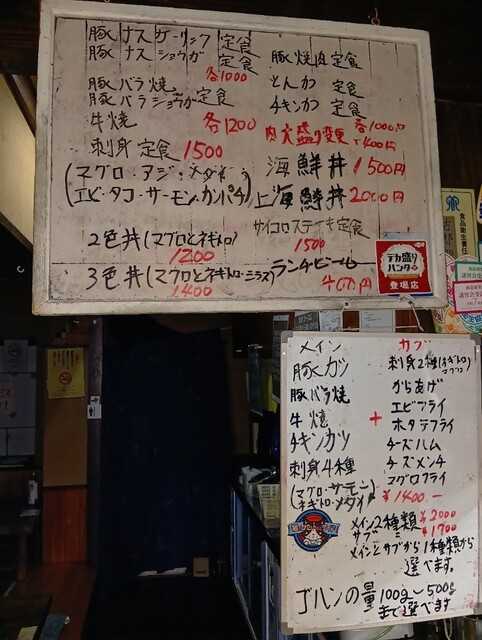 豚ナスガーリック定食
豚ナスショウガ定食
各1000
豚バラ焼
豚バラショウガ定食
牛焼 各1200
刺身定食 1500
(マグロ・アジ・メダイ
エビ・タコ・サーモン・カンパチ)
2色丼(マグロとネギトロ)
1200
3色丼(マグロとネギトロ・シラス)
1400
豚焼肉定食
とんかつ定食
チキンカツ定食
各1000円
肉大盛り変更 +400円
海鮮丼 1500円
上海鮮丼 2000円
サイコロステーキ定食
1500
ランチビール
400円
デカ盛り
ハンター
登場店
メイン
豚カツ
豚バラ焼
牛焼
チキンカツ
刺身4種
(マグロ・サーモン
ネギトロ・メダイ)
+
サブ
刺身2種(ネギトロ
マグロ)
からあげ
エビフライ
ホタテフライ
チーズハム
チーズメンチ
マグロフライ
¥1400.-
メイン2種類 ¥2000
サブ 〃 ¥1700
メインとサブから1種類から
選べます。
ゴハンの量 100g〜500g
まで選べます
食品衛生責任